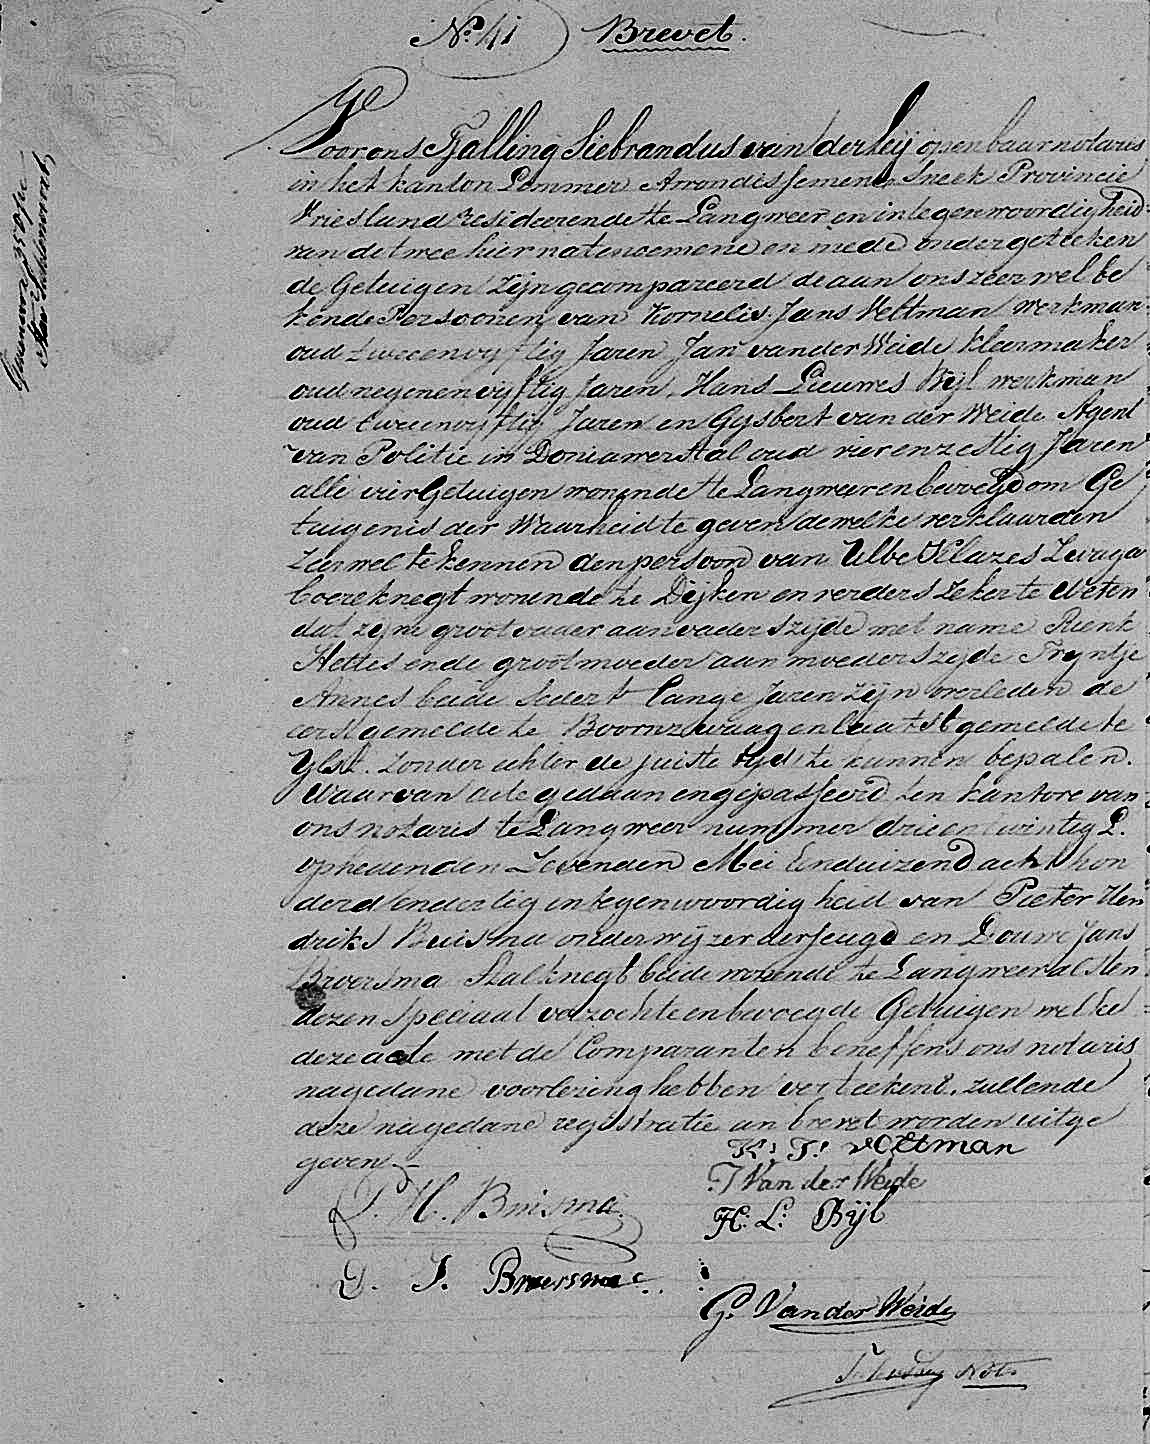 No 41 Brevet.
Voor ons Tjalling Siebrandus van der Leij openbaar notaris
in het kanton Lemmer Arrondissement Sneek Provincie
Vriesland resideerende te Langweer en in tegenwoordigheid
van de twee hier nate noemene en mede ondergeteeken
de Getuigen zijn gecompareerd de aan ons zeer wel be
kende Persoonen van Kornelis Jans Veltman werkman
oud tweeenvyftig Jaren Jan van der Weide kleermaker
oud negenenvyftig Jaren, Hans Lieuwes Bijl werkman
oud tweeenvyftig Jaren en Gysbert van der Weide Agent
van Politie in Doniawerstal oud vierenzestig Jaren
alle vier Getuigen wonende te Langweer en bevoegd om Ge
tuigenis der Waarheid te geven dewelke verklaarden
zeer wel te kennen den persoon van Ulbe Klazes
boereknegt wonende te Dijken en verders zeker te weten
dat zyne grootvader aan vaders zijde met name Rienk
Hettes en de grootmoeder aan moeders zyde Tryntje
Annes beide sedert lange Jaren zijn overleden de
eerstgemelde te Boornzwaag en laatstgemelde te
Ylst. zonder echter de juiste tijd te kunnen bepalen.
Waarvan acte gedaan en gepasseerd ten kantore van
ons notaris te Langweer nummer drieentwintig L.
op heden den Zevenden Mei Eenduizend acht hon
derd en dertig in tegenwoordigheid van Pieter Hen
driks Buisma onderwijzer der Jeugd en Douwe Jans
Broersma Stalknegt beide wonende te Langweer als ten
dezen speciaal verzochte en bevoegde Getuigen welke
deze acte met de Comparanten beneffens ons notaris
na gedane voorlezing hebben verteekent, zullende
deze na gedane registratie in brevet worden uitge
geven.
K. J. Veltman
J Van der Weide
P. H. Buisma
H. L. Bijl
D. J. Broersma
G. Van der Weide